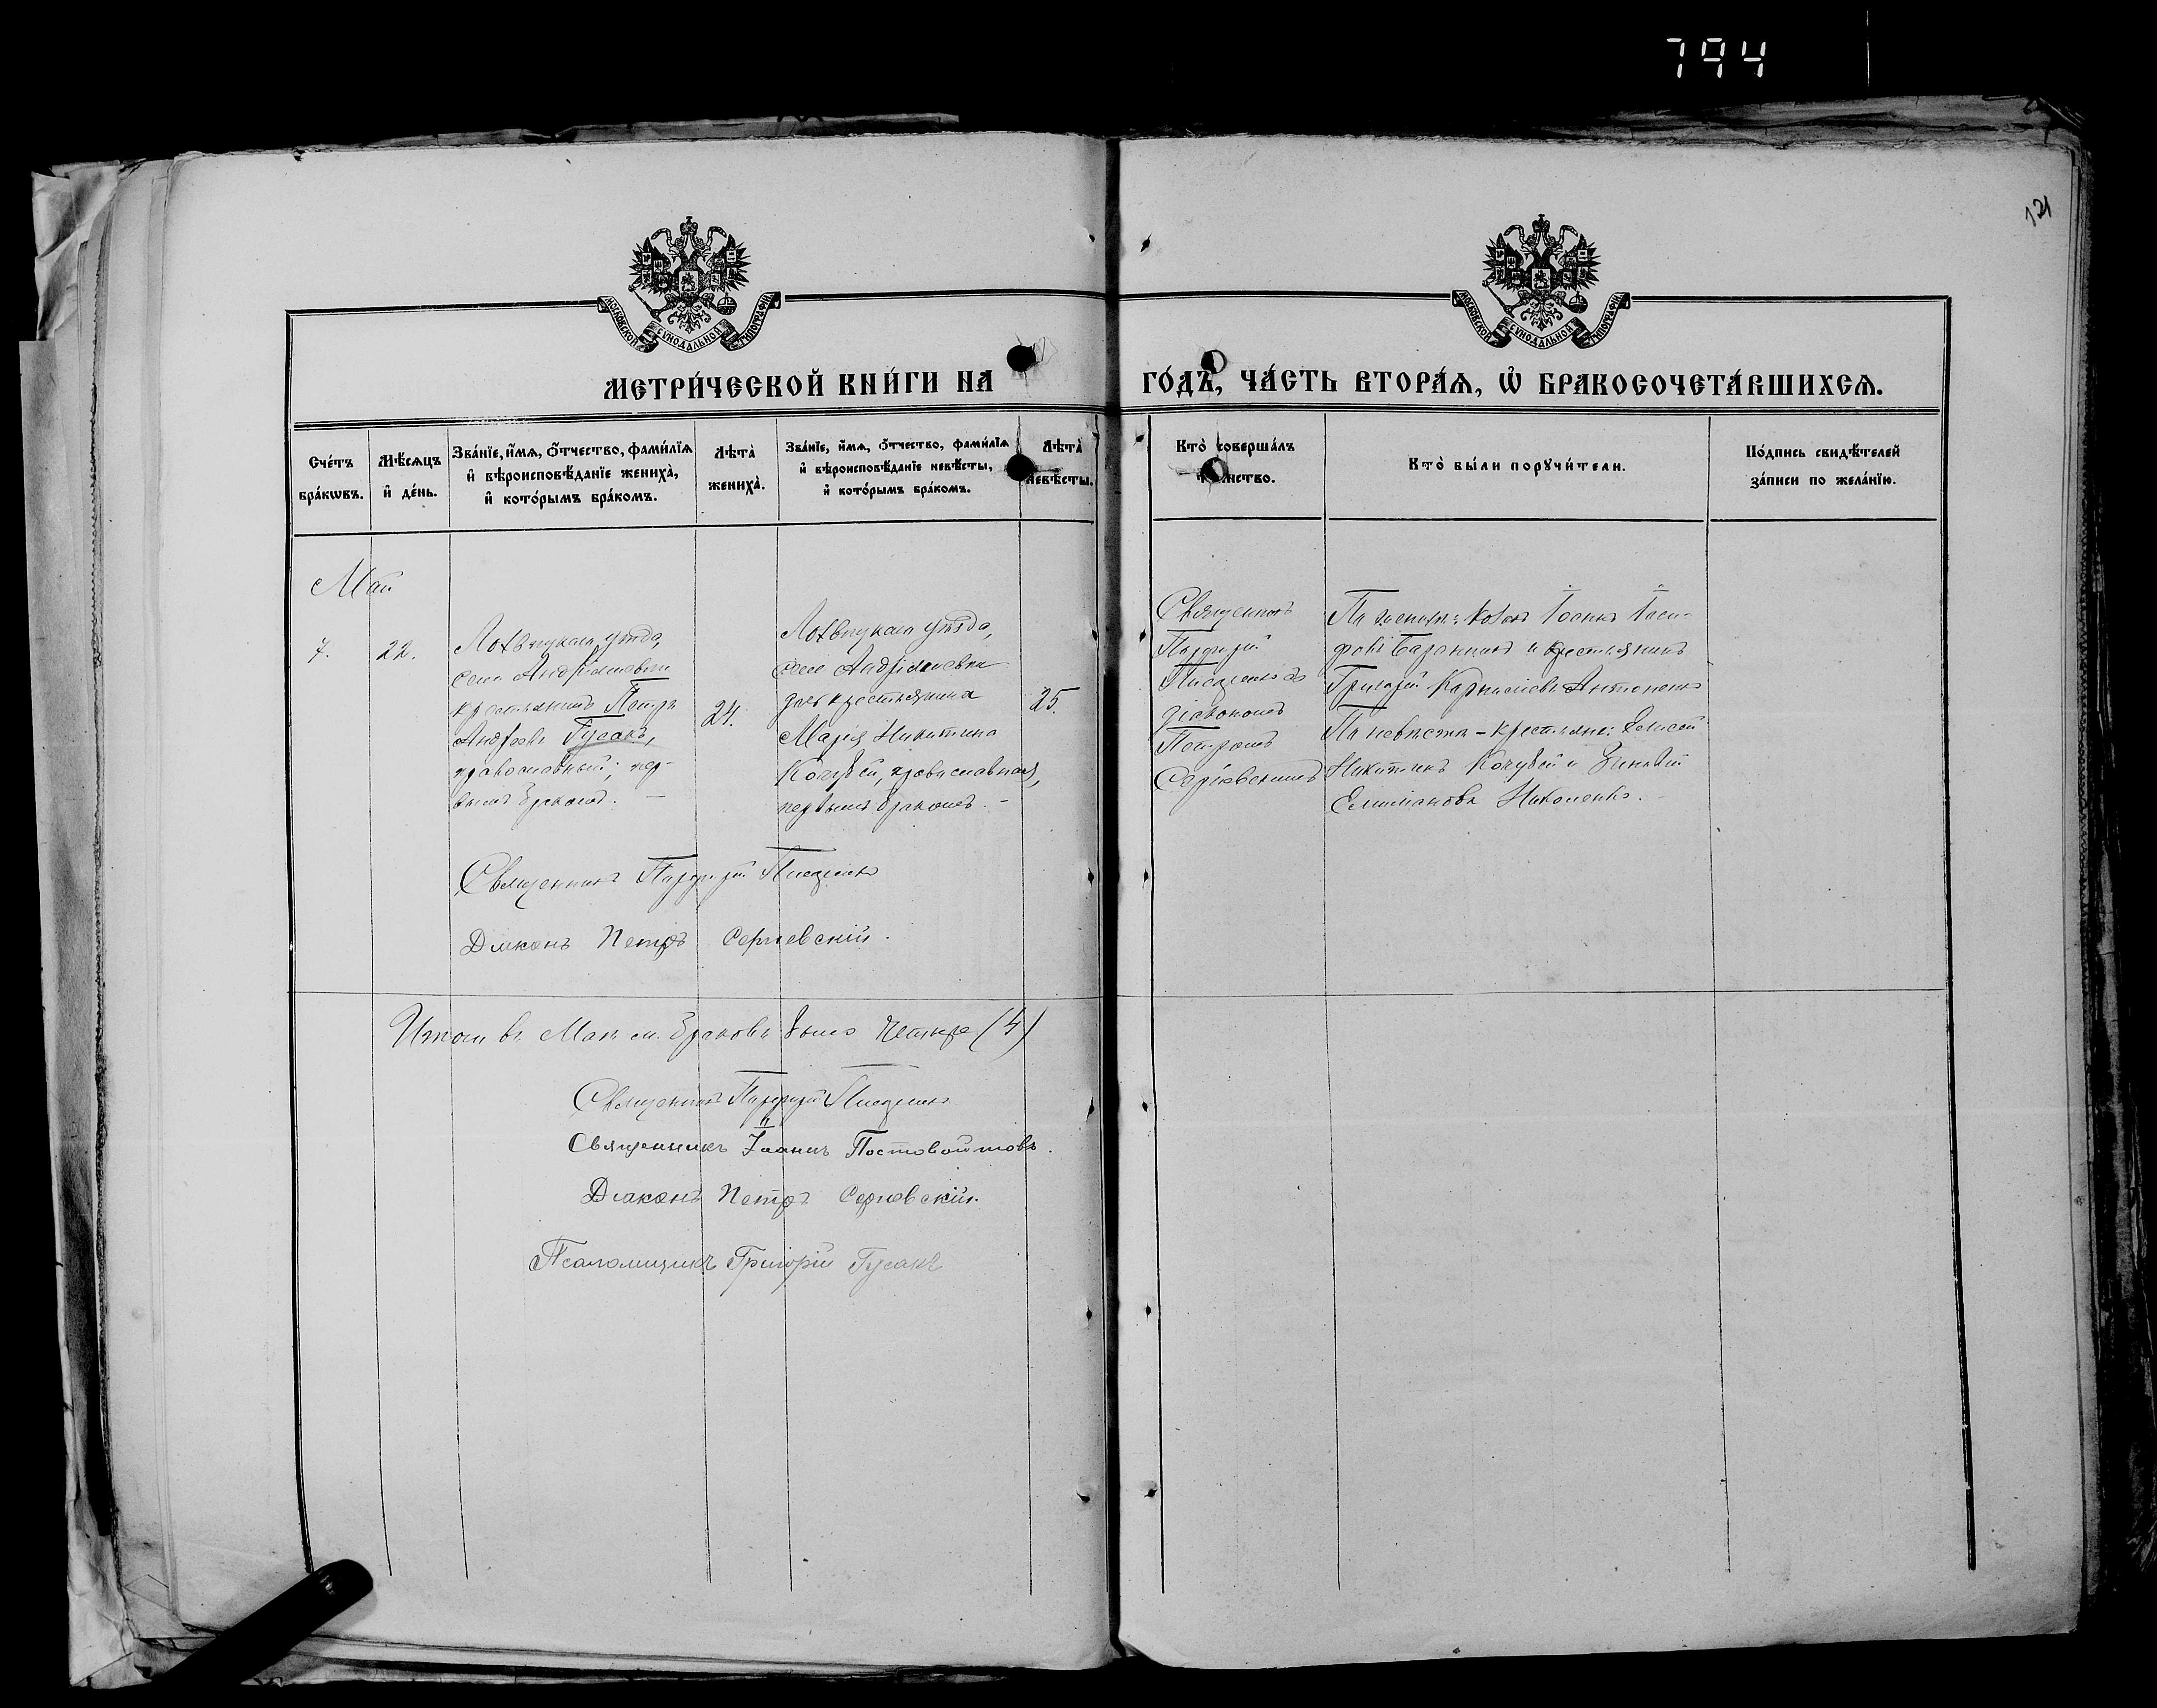 794
121
МОСКОВСКОЙ СѴНОДАЛЬНОЙ ТИПОГРАФІИ
МОСКОВСКОЙ СѴНОДАЛЬНОЙ ТИПОГРАФІИ
МЕТРИ́ЧЕСКОЙ КНИ́ГИ НА ГО́ДЪ, ЧА́СТЬ ВТОРА́Ѧ, Ѽ БРАКОСОЧЕТА́ВШИХСѦ.
Сче́тъ бра́кѡвъ.
Мѣ́сѧцъ и҆ де́нь.
Зва́нїе, и҆́мѧ, ѻ҆́тчество, фами́лїѧ и҆ вѣроисповѣ́данїе жениха̀, и҆ кото́рымъ бра́комъ.
Лѣта̀ жениха̀.
Зва́нїе, и҆́мѧ, ѻ҆́тчество, фами́лїѧ и҆ вѣроисповѣ́данїе невѣ́сты, и҆ кото́рымъ бра́комъ.
Лѣта̀ невѣ́сты.
Кто̀ соверша́лъ
Кто̀ бы́ли порꙋчи́тели.
По́дпись свидѣ́телей за́писи по жела́нїю.
Май
7.
22.
Лохвицкаго уѣзда,
села Андріяшевки
крестьянинъ Петръ
Андреевъ Гусакъ,
православный; пер-
вымъ бракомъ. —
24.
Лохвицкаго уѣзда,
села Андріяшевки
дочь крестьянина
Марія Никитина
Кочубей, православная,
первымъ бракомъ. —
25.
Священникъ
Порфирій
съ
діакономъ
Петромъ
Сергіевскимъ
По женихѣ: козакъ Іоаннъ
и крестьянинъ
Григорій Антоненко
По невѣстѣ – крестьяне: Елисей
Никитинъ Кочубей и
Николенко.
Священникъ Порфирій
Діаконъ Петръ Сергіевскій.
Итого въ Маѣ м. браковъ было четыре (4)
Священникъ Порфирій
Священникъ Іоаннъ Постовойтовъ.
Діаконъ Петръ Сергіевскій.
Псаломщикъ Григорій Гусакъ